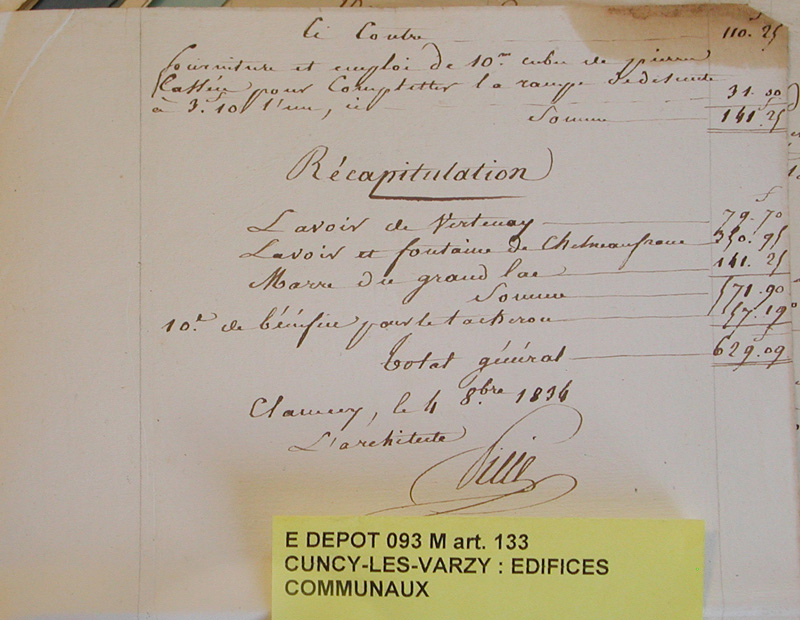 Ci Contre 110. 25
fourniture et emploi de 10m cube de pierre
Cassée pour Completter la rampe de descente
à 3. 10 l'un, ci 31. 00
Somme 141. 25
Récapitulation
f
Lavoir de Vertenay 79. 70
Lavoir et fontaine de 350. 95
Marre du grand lac 141. 25
Somme 571. 90
10e de bénéfice pour le tacheron 57. 19
Total général 629. 09
Clamecy, le 4 8bre 1834
L'architecte
E DEPOT 093 M art. 133
CUNCY-LES-VARZY : EDIFICES
COMMUNAUX